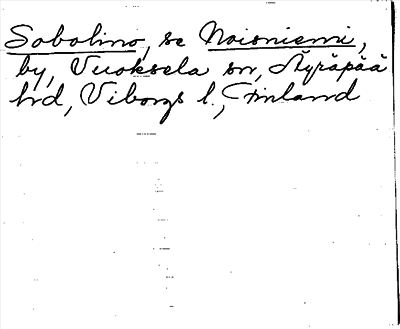 Sobolino, se Noisniemi,
by, Vuoksela sn, Äyräpää
hd, Viborgs l., Finland